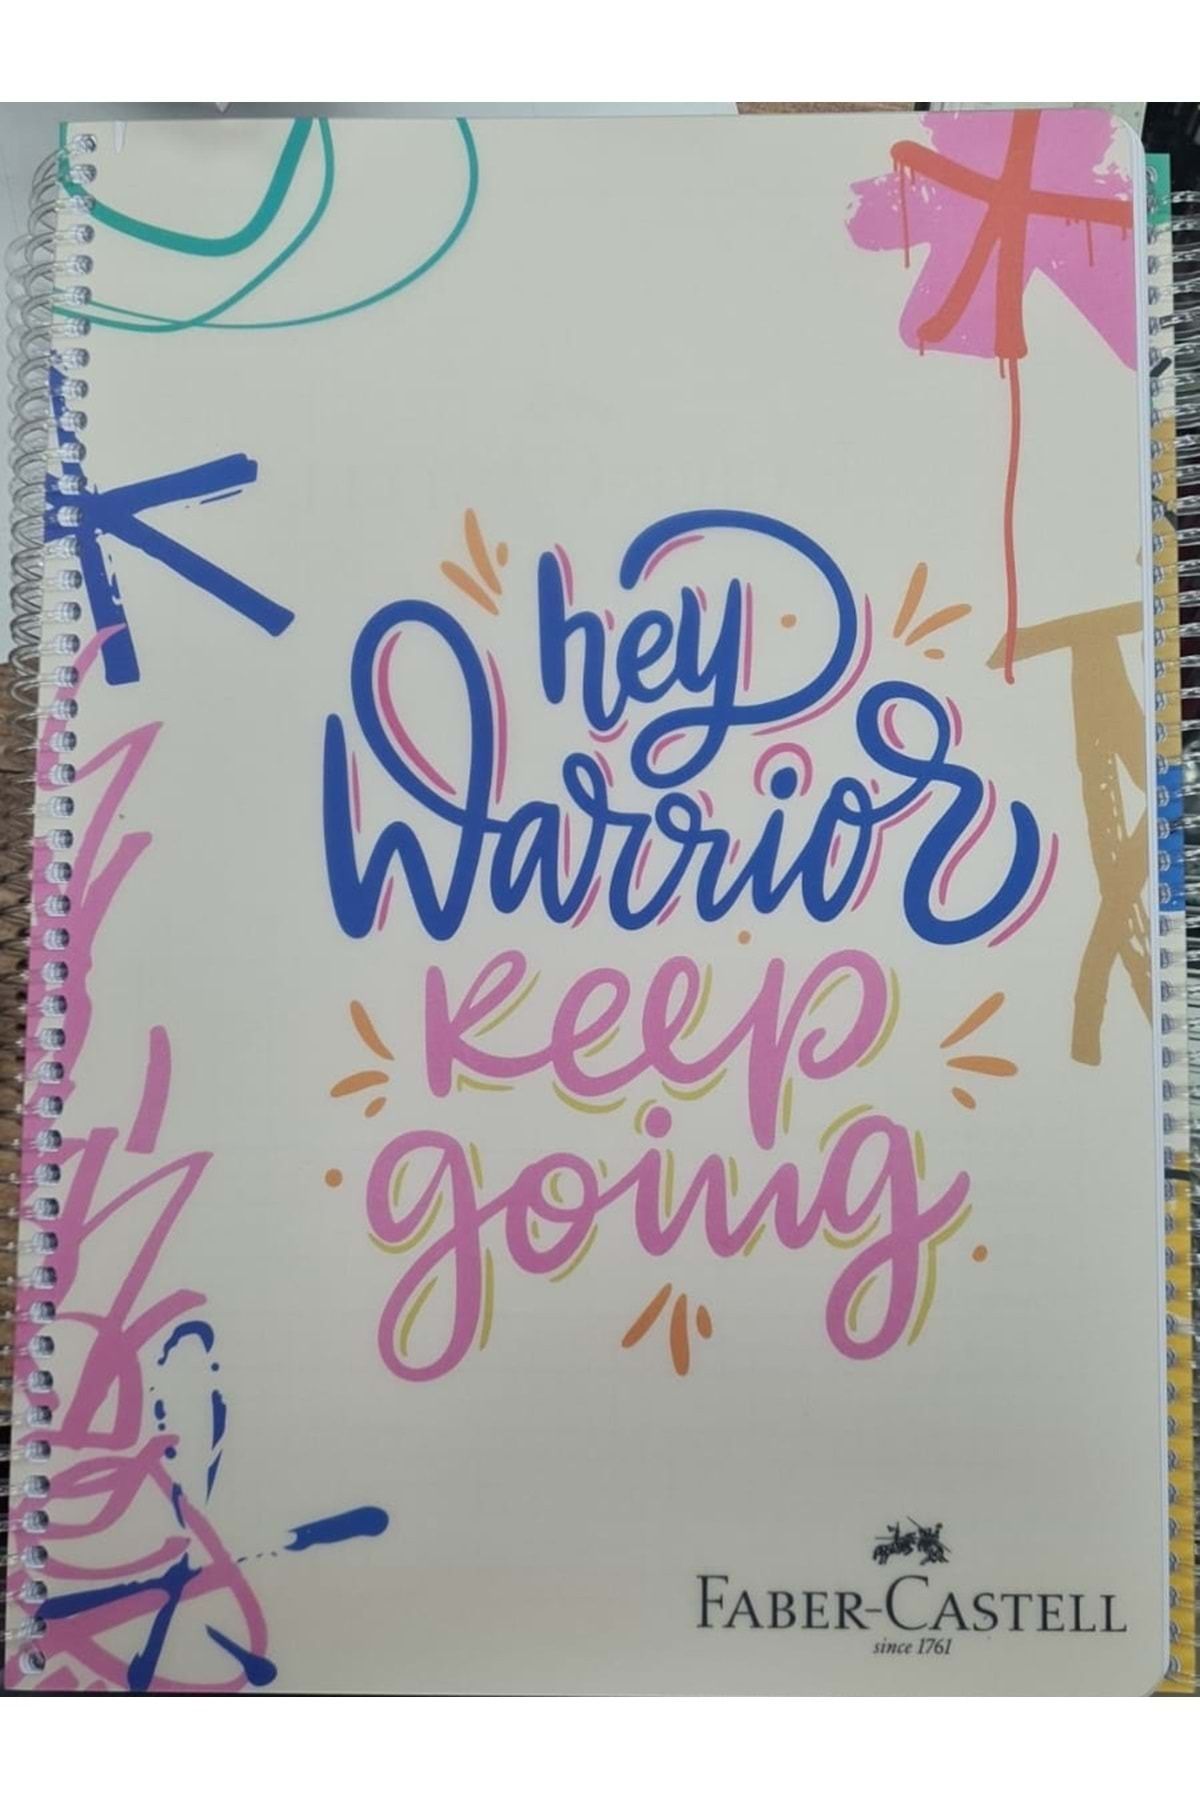 hey
Warrior
keep
going
FABER-CASTELL
since 1761